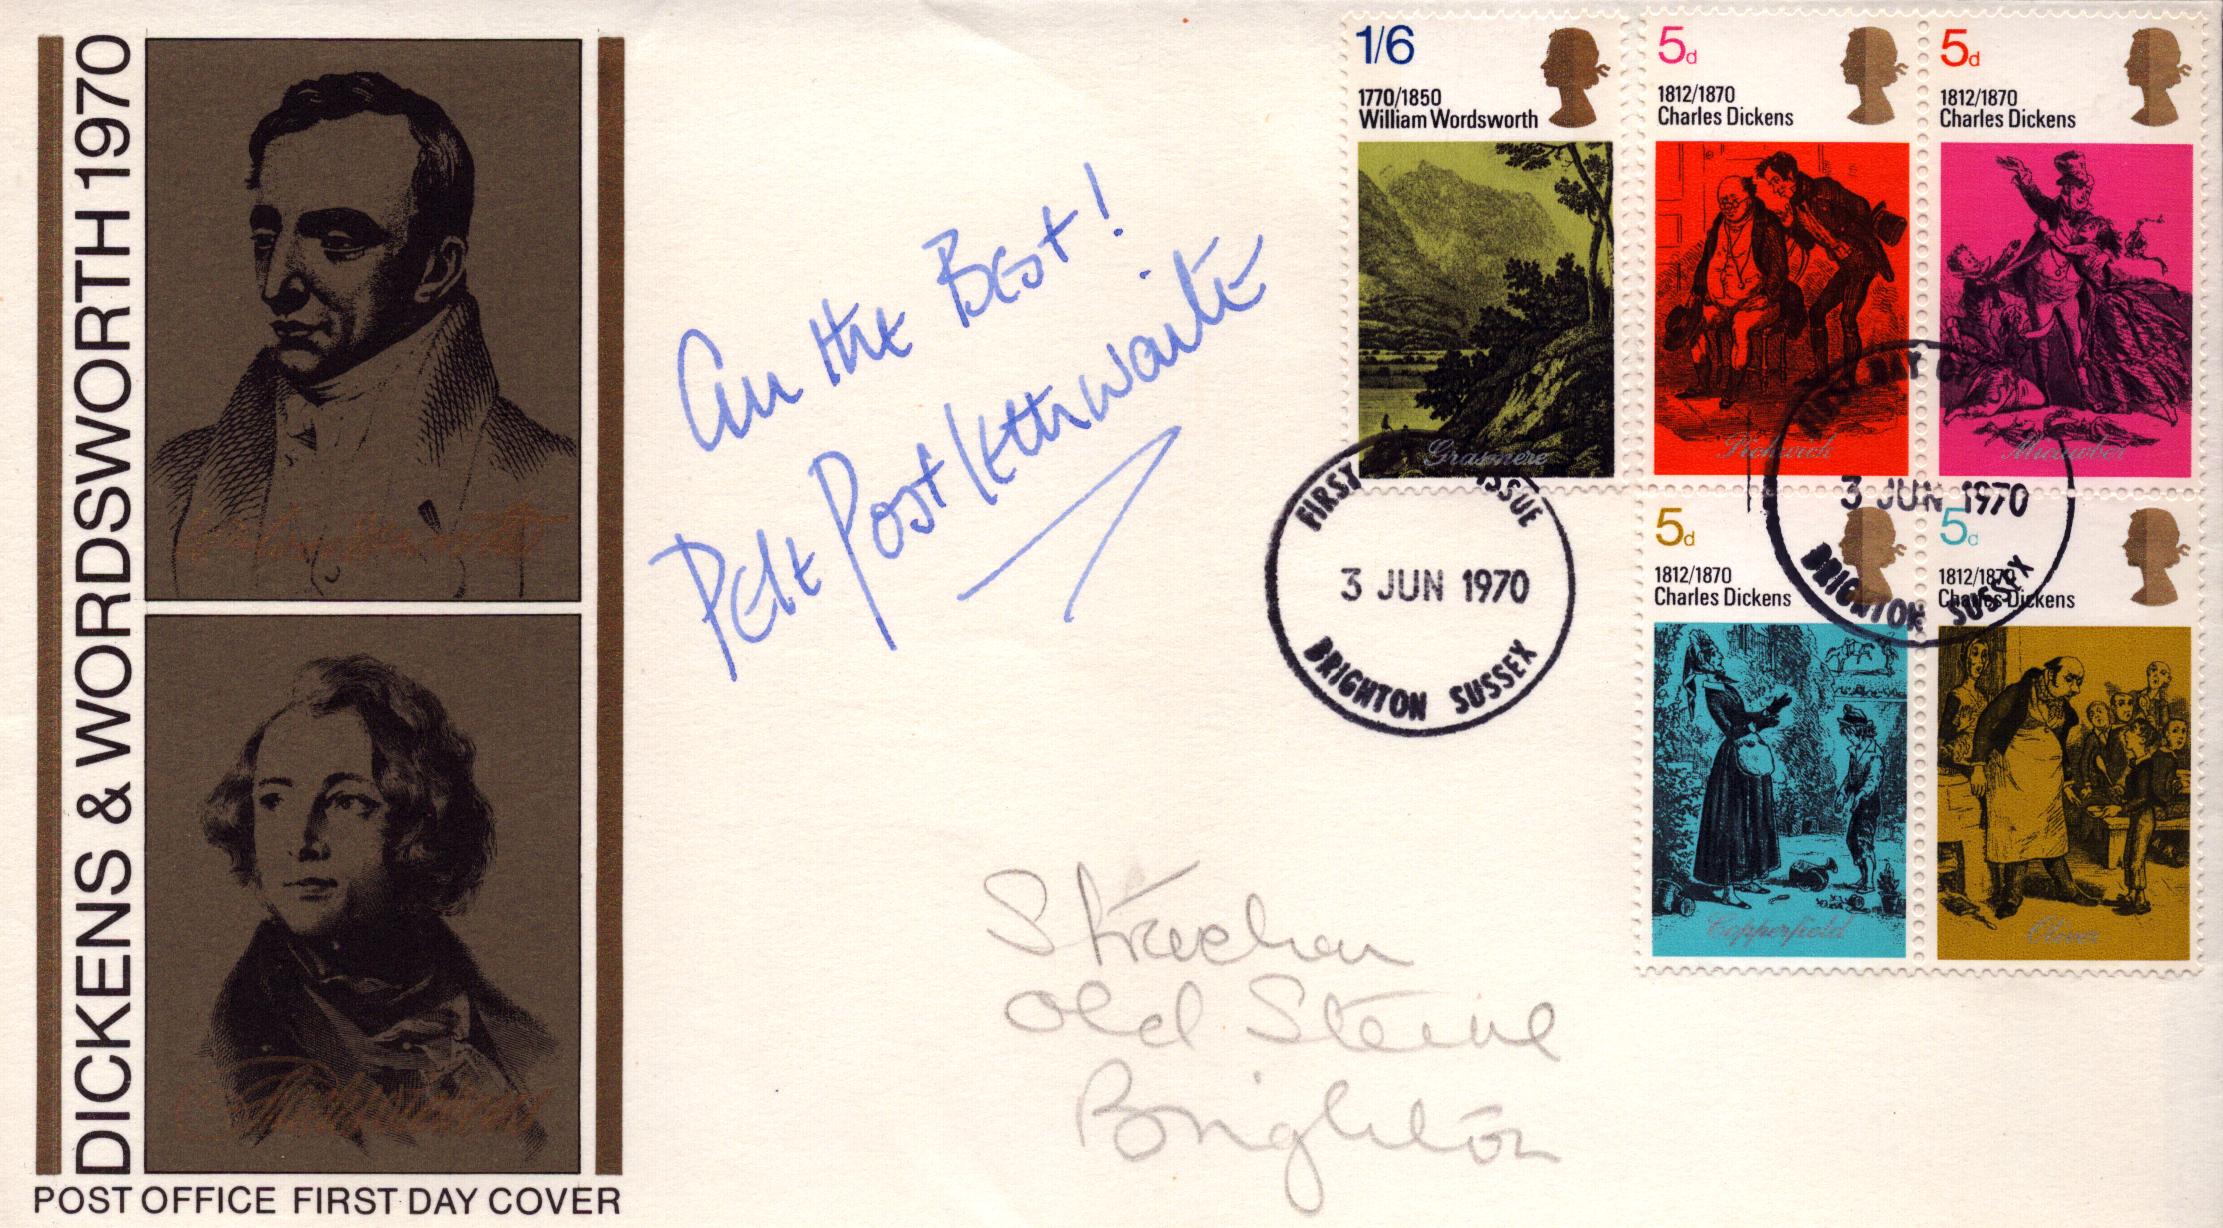 DICKENS & WORDSWORTH 1970
POST OFFICE FIRST DAY COVER
All the Best!
Pete Postlethwaite
1/6
1770/1850
William Wordsworth
Grasmere
5d
1812/1870
Charles Dickens
Pickwick
5d
1812/1870
Charles Dickens
Micawber
5d
1812/1870
Charles Dickens
Copperfield
5d
1812/1870
Charles Dickens
Oliver
FIRST ISSUE
3 JUN 1970
BRIGHTON SUSSEX
DAY OF
3 JUN 1970
BRIGHTON SUSSEX
Strachan
Old Steine
Brighton